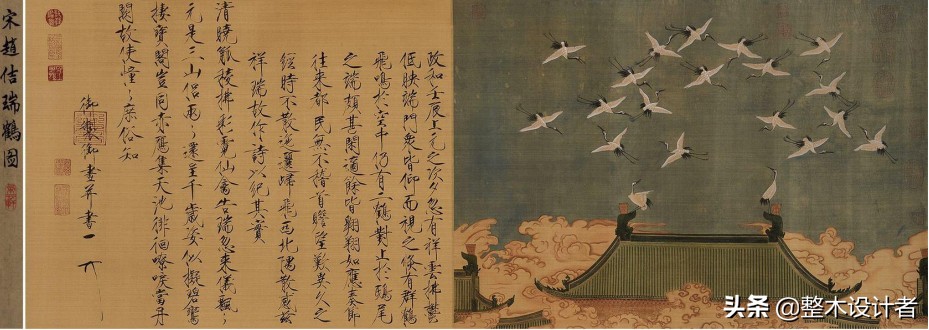 政和壬辰上元之次夕忽有祥雲拂鬱
低映端門衆皆仰而視之倏有群鶴
飛鳴於空中仍有二鶴對止於鴟尾
之端頗甚閑適餘皆翱翔如應奏節
往來都民無不稽首瞻望歎異久之
經時不散迤邐歸飛西北隅散感茲
祥瑞故作詩以紀其實
清曉觚稜拂彩霓仙禽告瑞忽來儀飄〻
元是三山侶兩〻還呈千歲姿似擬碧鸞
棲寶閣豈同赤鴈集天池徘徊嘹唳當丹
闕故使憧〻庶俗知
御製御畫并書
宋趙佶瑞鶴圖
头条 @整木设计者